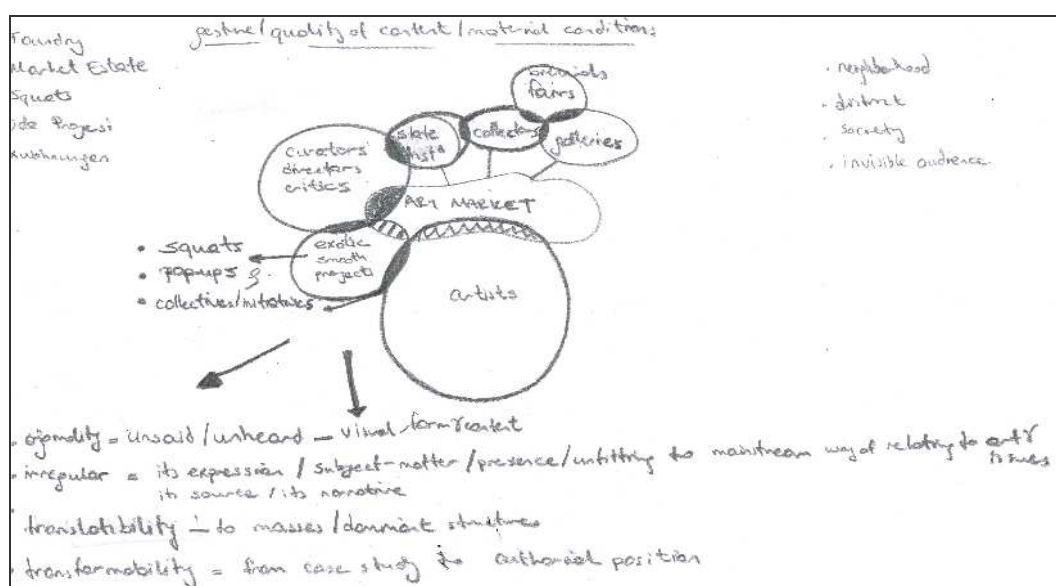 gesture/quality of content/material conditions
Foundry
Market Estate
Squats
Projesi
• neighborhood
• district
• society
• invisible audience
fairs
state
collectors
galleries
curators
directors
critics
ART MARKET
exotic
smooth
projects
artists
• squats
• pop-ups &
• collectives/initiatives
unsaid/unheard – visual form & content
• irregular = its expression / subject-matter / presence / unfitting to mainstream way of relating to art &
issues
its source / its narrative
• translatibility – to masses/dominant structures
• transformability = from case study to authorial position